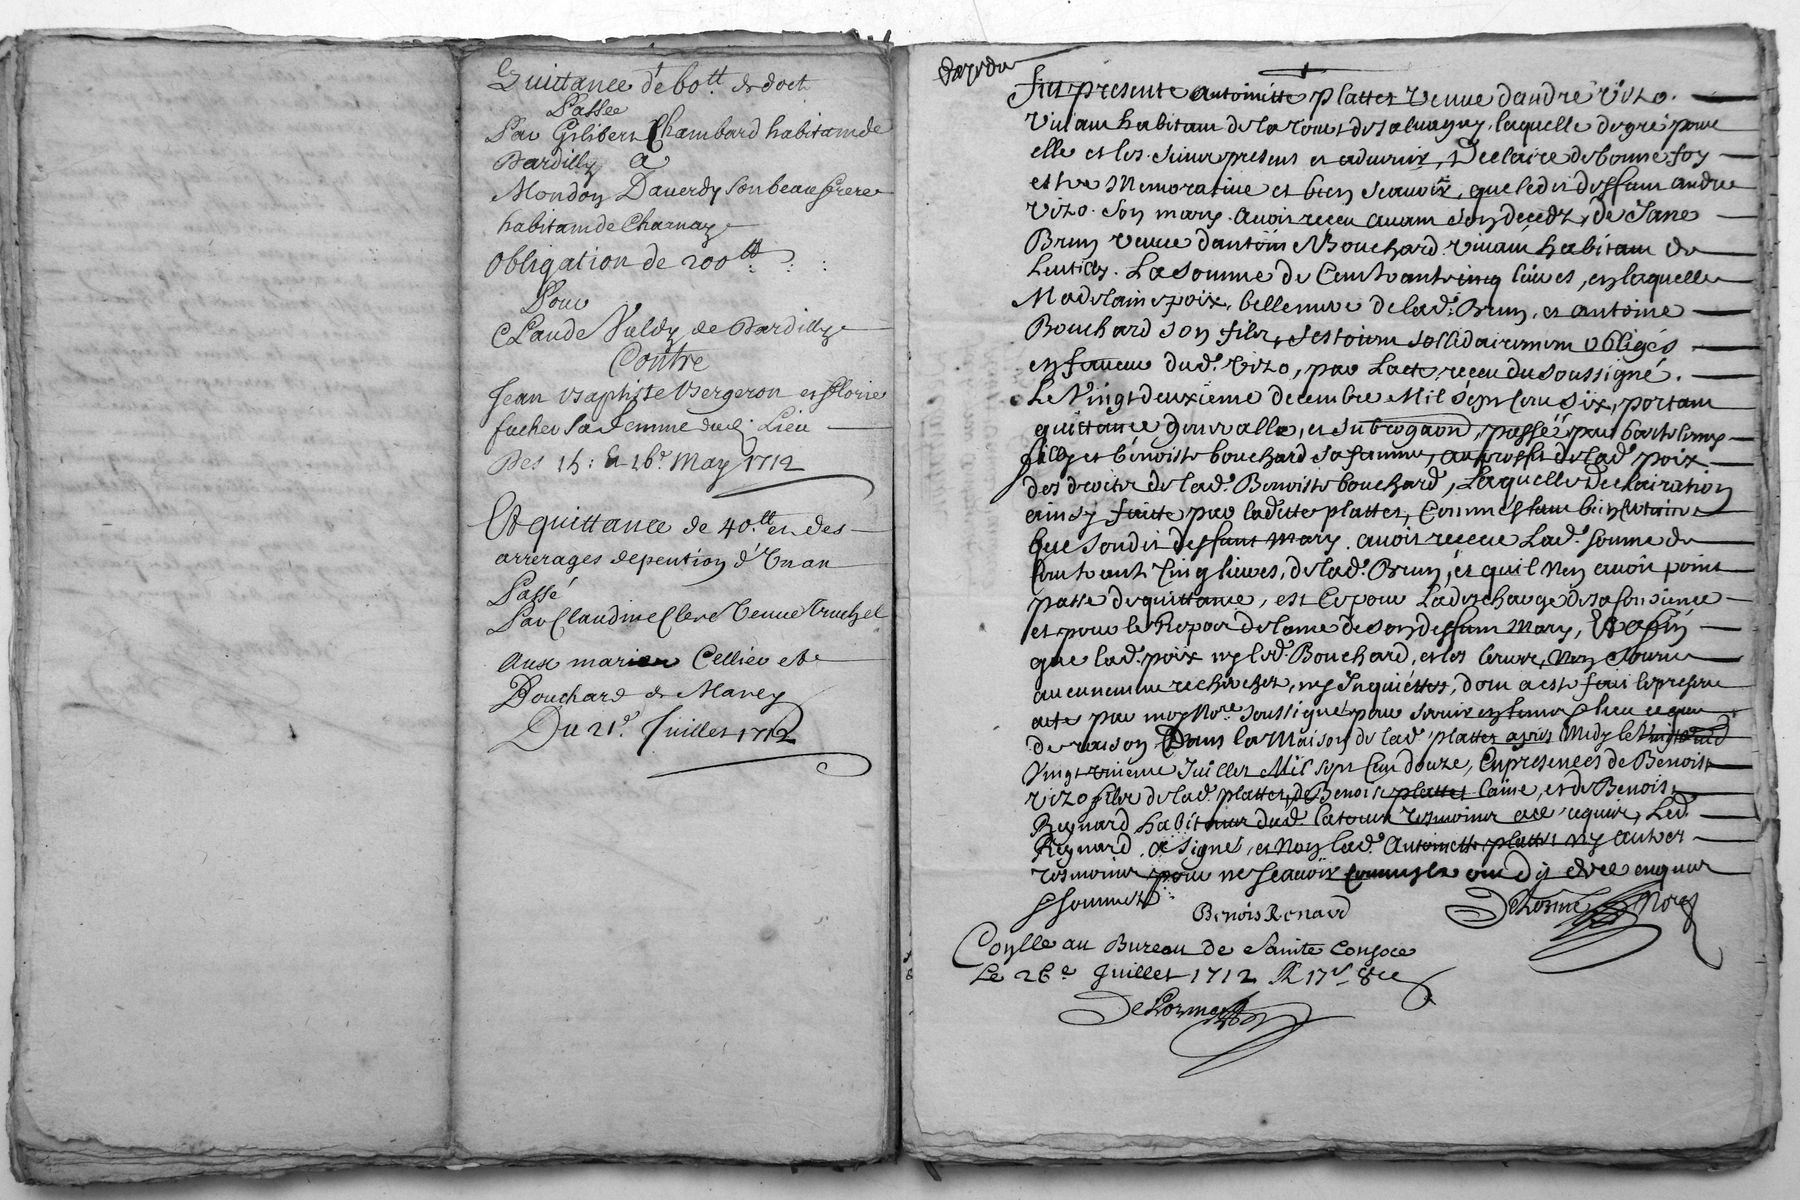 Quittance de 60.tt de doct
Passée
Par Gilibert Chambard habitant de
Dardilly a
Mondon Daverdy son beau frere
habitant de Charnay
Obligation de 200tt
Pour
Claude Valdy de Dardilly
Contre
Jean Baptiste Bergeron et florie
sa femme dud. Lieu
Des 15: & 16e May 1712
Et quittance de 40.tt en des
arrerages de pention d'un an
Passé
Par Claudine Clere veuve Truchet
Aux mariez Cellier et
Bouchard de Marcy
Du 21e Juillet 1712
Fut presente Antoinette platter veuve dandre vizo
vivant habitant de la Tour de salvagny, laquelle de gré pour
elle et les siens presens et advenir, Declaire de bonne foy
estre Memorative et bien scavoir, que ledit deffunt andre
vizo son mary avoir receu avant son decedz, de Jane
Brun veuve dantoine Bouchard vivant habitant de
Lentilly. La somme de Cent trante cinq livres, en laquelle
Madelaine poix, belle mere de lad. Brun, et antoine
Bouchard son fils, sestoient sollidairement obligés
en faveur dud. vizo, par Lacte receu du soussigné.
Le Vingt deuxieme decembre Mil sept cens six, portant
quittance generalle, et subrogaon, passé par bartelemy
et benoiste bouchard sa femme, au proffit de lad. poix
des droits de lad. Benoiste bouchard, Laquelle declairation
ainsy faitte par laditte platter, Comme estant bien certaine
que sondit deffunt Mary avoit receu Lad. somme de
Cent trante Cinq livres, de lad. Brun, et quil Nen avoit point
passé de quittance, est Ce pour La descharge de sa Consience
et pour le Repos de lame de son deffunt Mary, Et afin
que lad. poix ny led. Bouchard, et les leurs, Nen soient
aucunement recherchez, ny Inquiettez, dont a esté fait le present
acte par moy Nore. soussigné pour servir en temps & lieu ce que
de raison Dans la Maison de lad. platter apres Midy le
Vingt unieme Juillet Mil sept Cens douze, En presences de Benoist
vizo fils de lad. platter, de Benoist platter laine, et de Benoist
Reynard habitans dud. latour tesmoins a ce requis, Led.
Reynard a signé, et Non lad. Antoinette platter ny autres
tesmoins pour ne scavoir Comme ils ont dit de ce enquis
& sommés
Benois Renard
Delorme Nore
Conlle au Bureau de Sainte Consorce
Le 26e Juillet 1712 R 17s 8d
Delorme